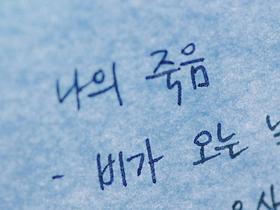 나의 죽음
- 비가 오는